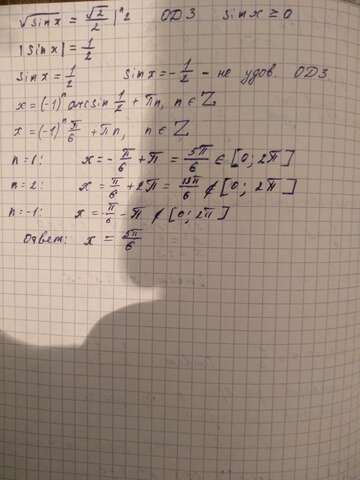 √sinx = √2/2 |^2 ОДЗ sinx ≥ 0
|sinx| = 1/2
sinx = 1/2 sinx = -1/2 - не удов. ОДЗ
x = (-1)^n arcsin 1/2 + πn, n ∈ Z
x = (-1)^n π/6 + πn, n ∈ Z
n=1: x = -π/6 + π = 5π/6 ∈ [0; 2π]
n=2: x = π/6 + 2π = 13π/6 ∉ [0; 2π]
n=-1: x = -π/6 - π ∉ [0; 2π]
ответ: x = 5π/6